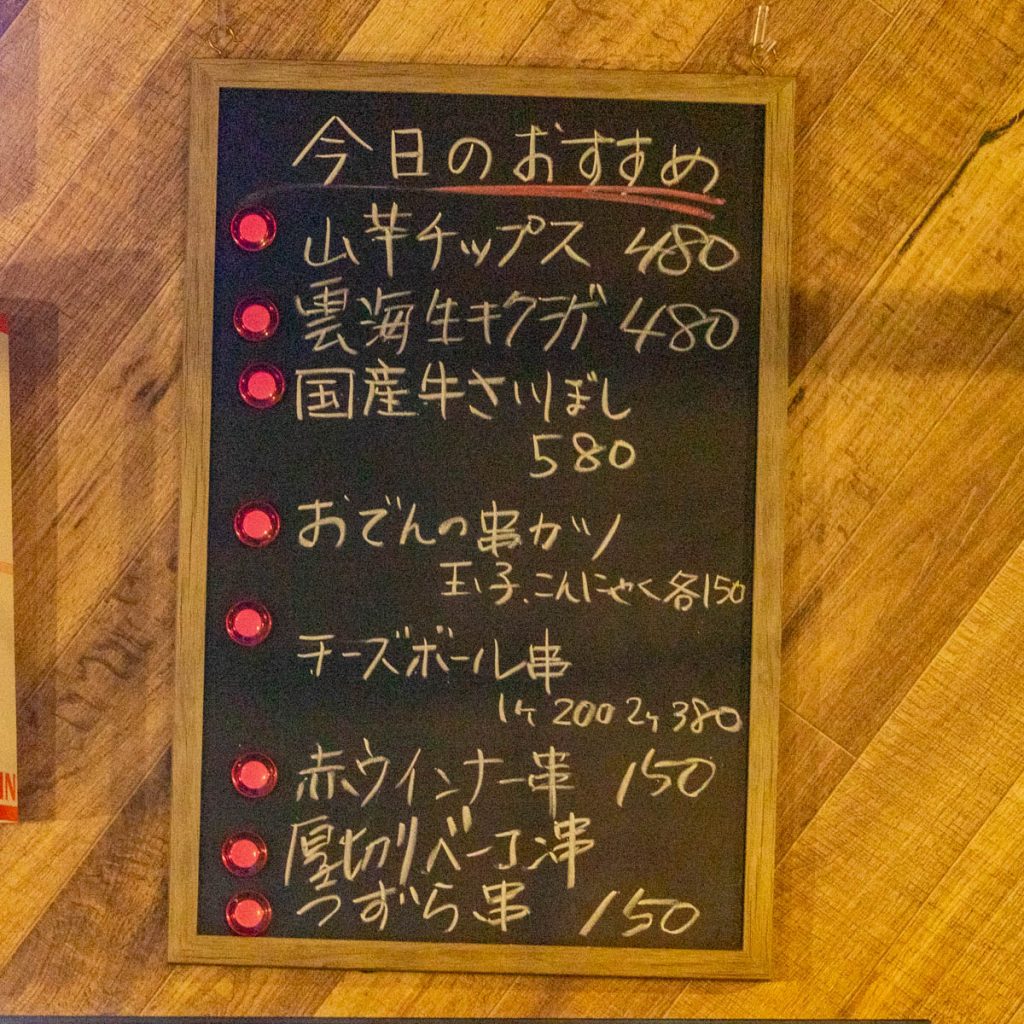 今日のおすすめ
山芋チップス 480
雲海生キクラゲ 480
国産牛さいぼし
580
おでんの串カツ
玉子、こんにゃく各150
チーズボール串
1ヶ 200 2ヶ 380
赤ウインナー串 150
厚切りベーコン串
うずら串 150
IN